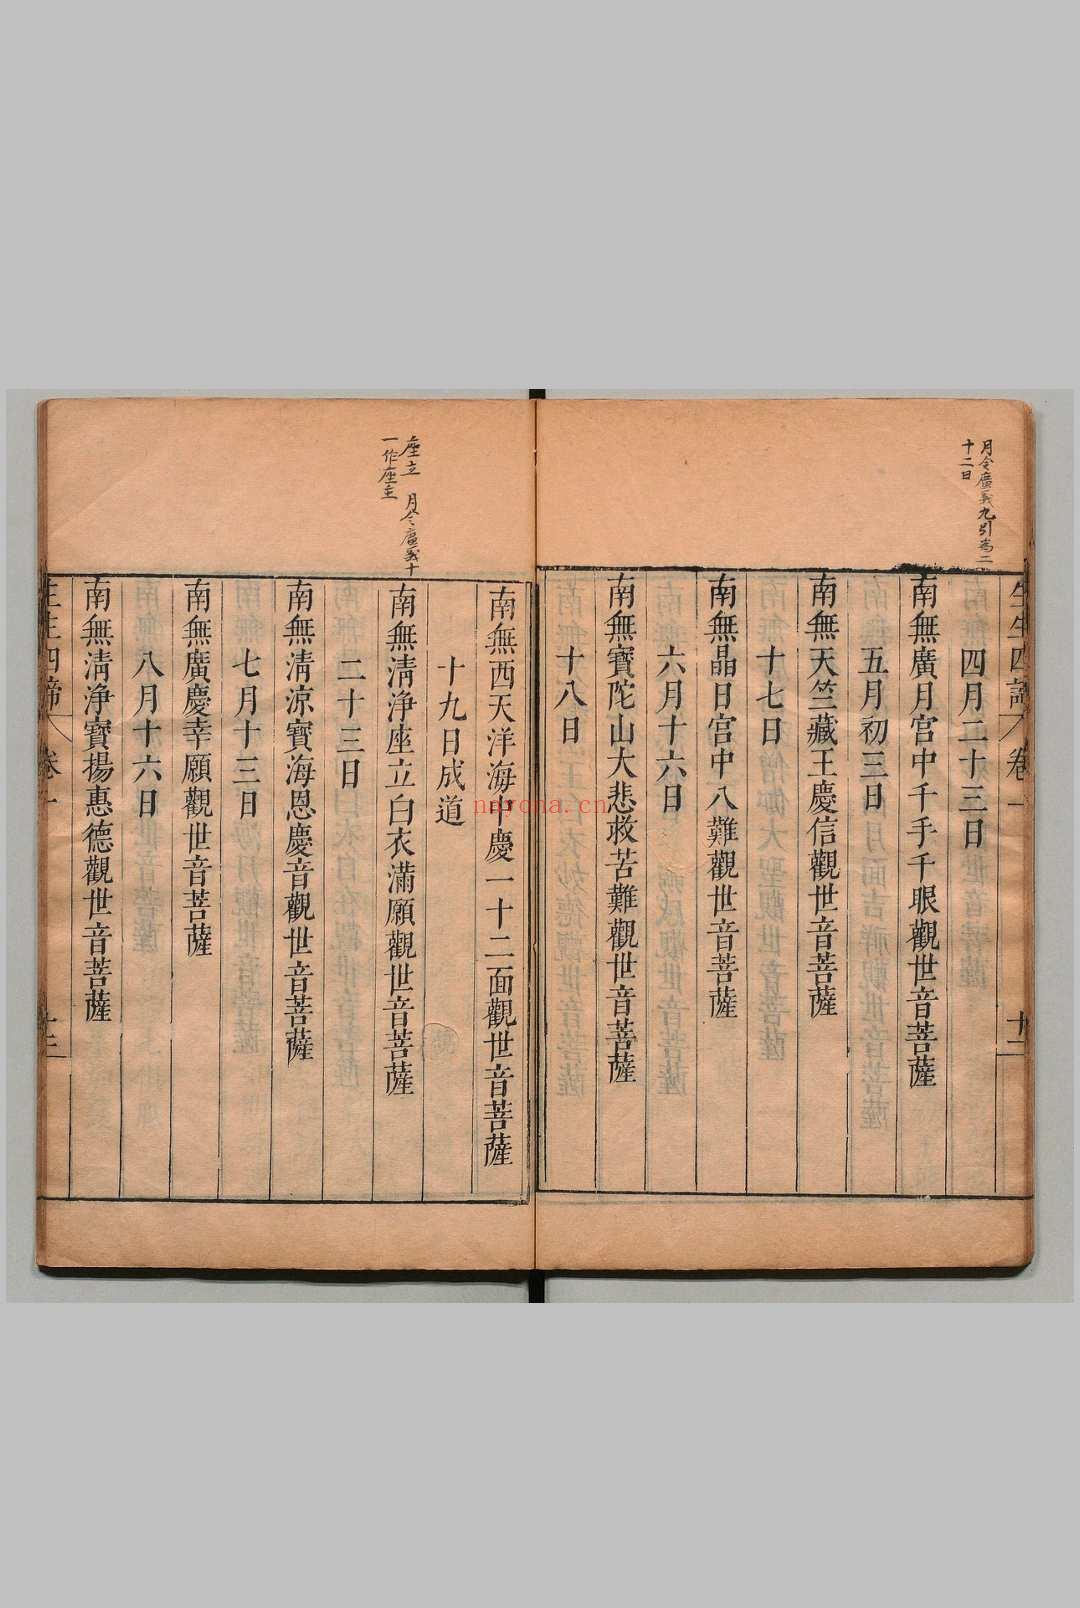 月令廣義九引為二
十二日
生生四諦 卷一 十二
四月二十三日
南無廣月宮中千手千眼觀世音菩薩
五月初三日
南無天竺藏王慶信觀世音菩薩
十七日
南無晶日宮中八難觀世音菩薩
六月十六日
南無寶陀山大悲救苦難觀世音菩薩
十八日
南無西天洋海中慶一十二面觀世音菩薩
十九日成道
座立 月令廣義十
一作座主
南無淸浄座立白衣滿願觀世音菩薩
二十三日
南無淸涼寶海恩慶音觀世音菩薩
七月十三日
南無廣慶幸願觀世音菩薩
八月十六日
南無淸浄寶揚惠德觀世音菩薩
生生四諦 卷一 十三
nayona.cn